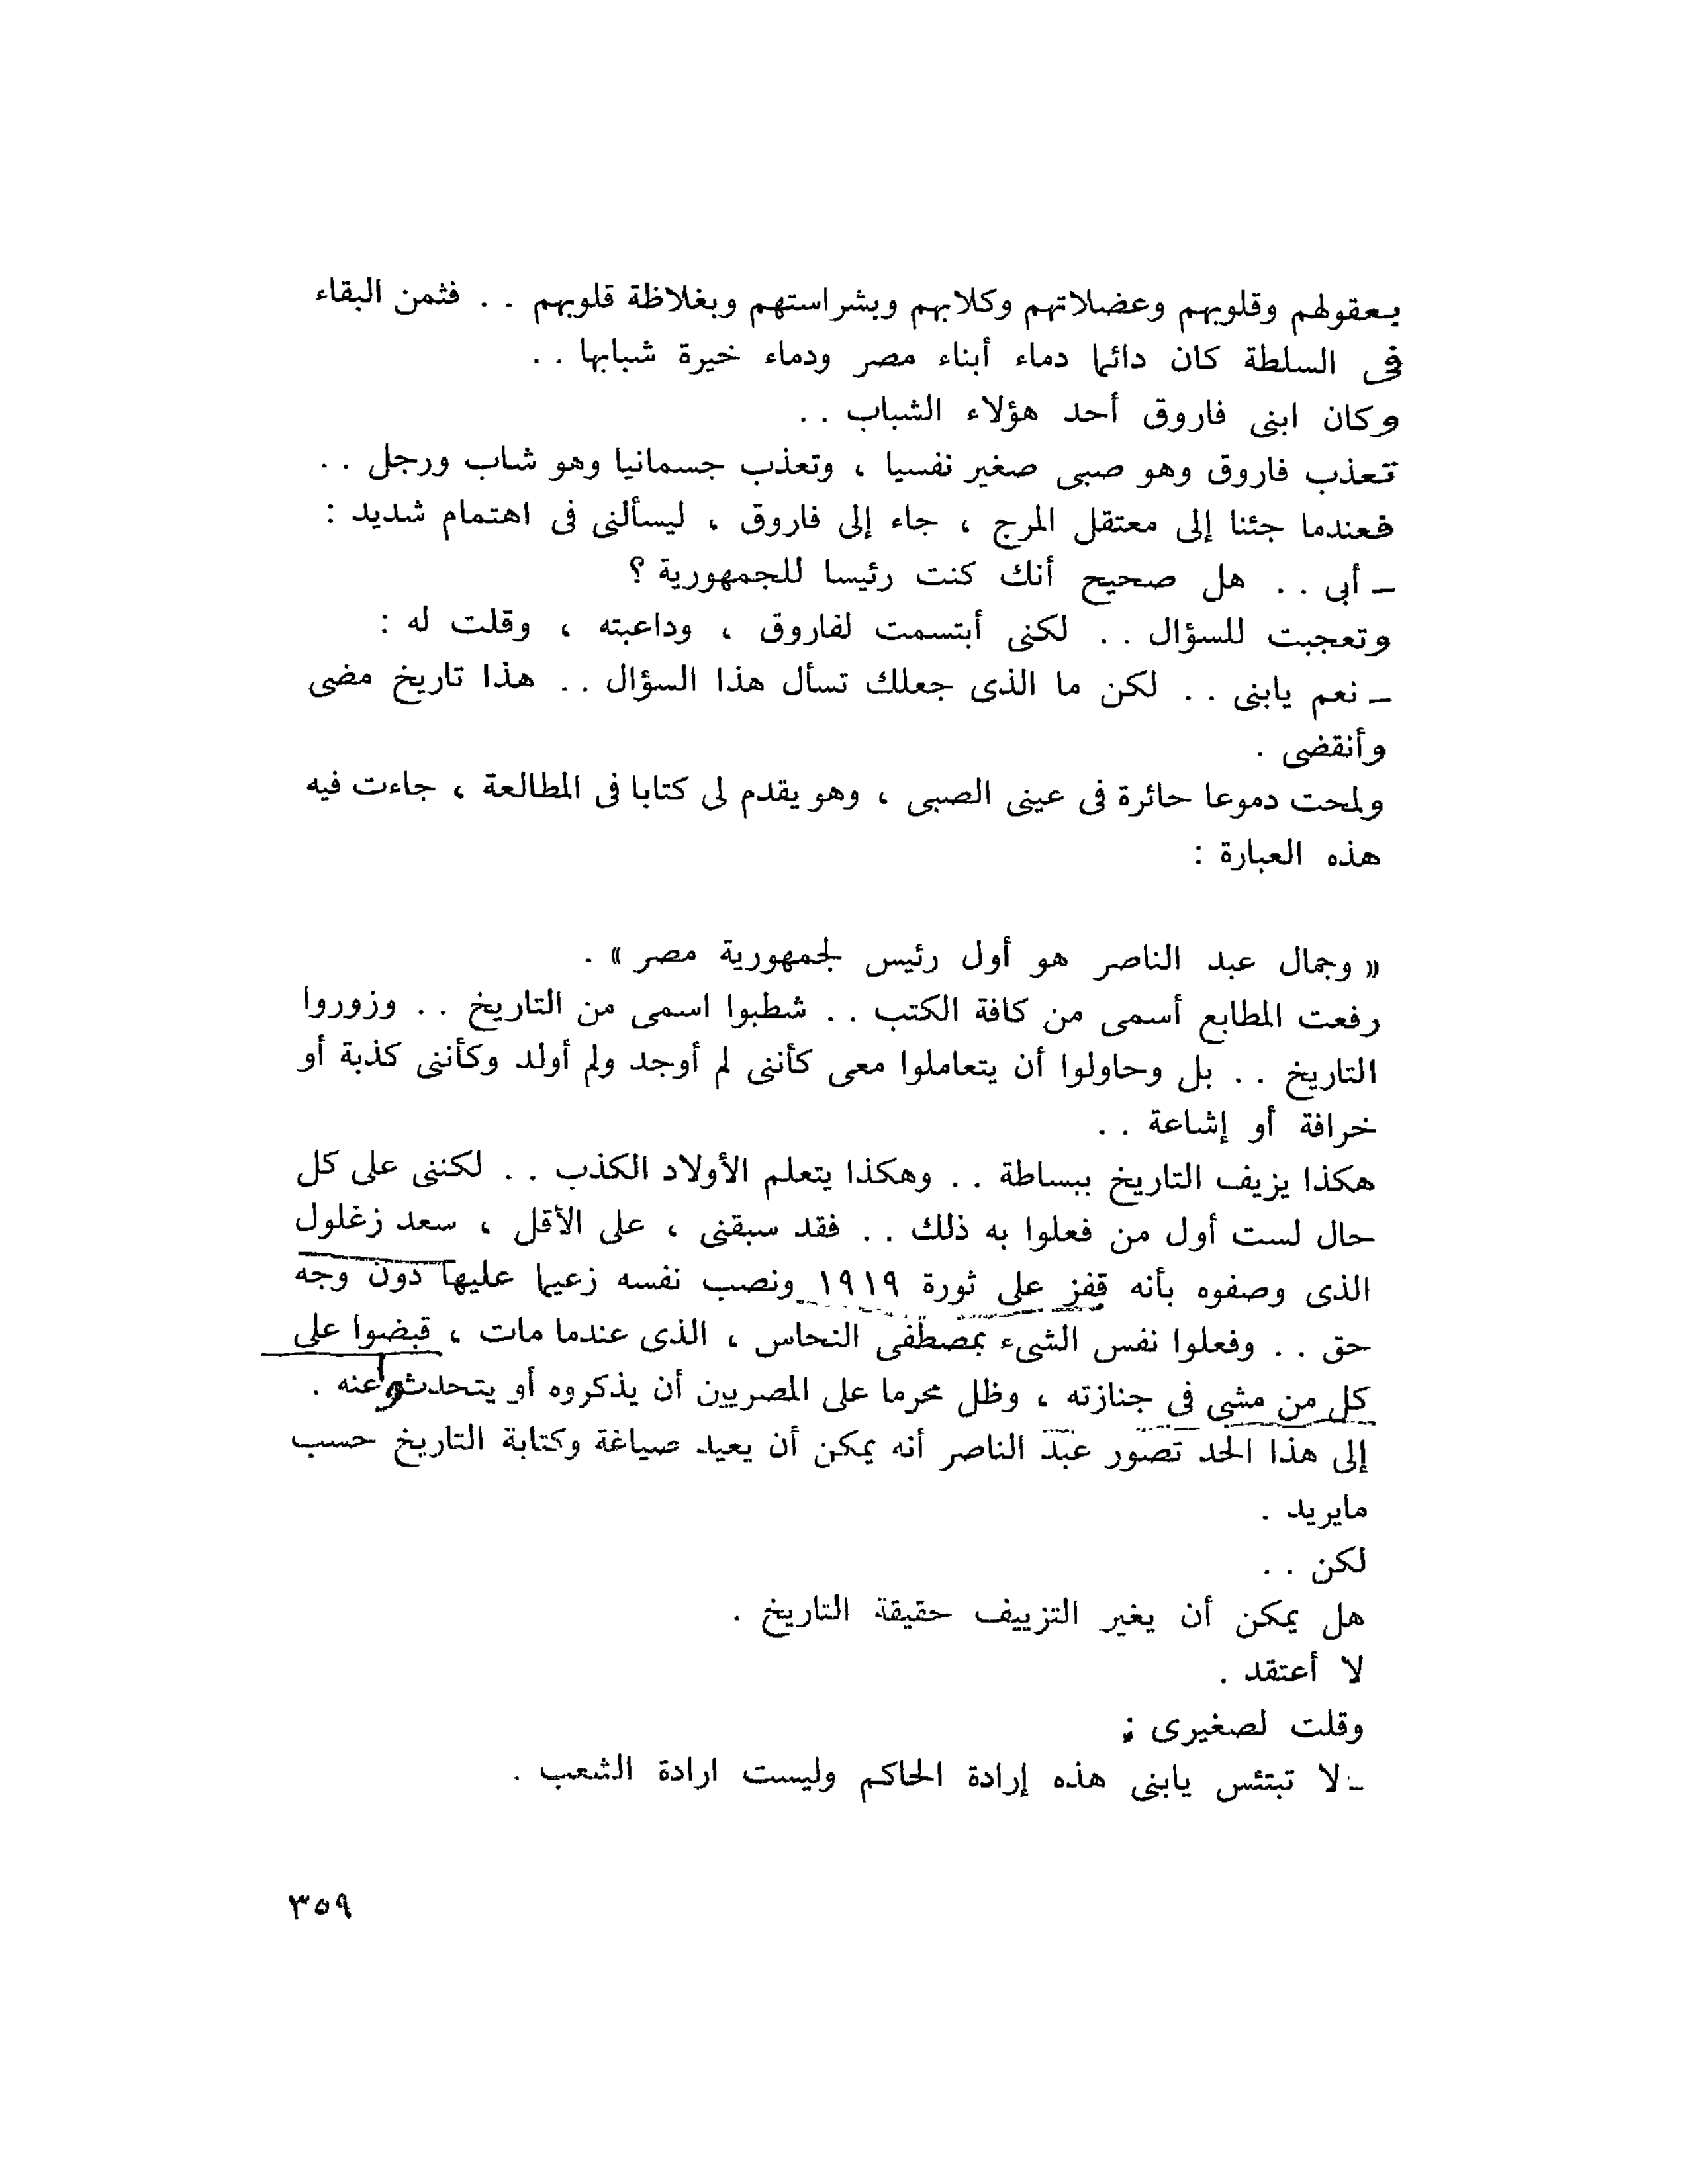 بعقولهم وقلوبهم وعضلاتهم وكلابهم وبشراستهم وبغلاظة قلوبهم . . فثمن البقاء
فى السلطة كان دائما دماء أبناء مصر ودماء خيرة شبابها . .
وكان ابنى فاروق أحد هؤلاء الشباب . .
تعذب فاروق وهو صبى صغير نفسيا ، وتعذب جسمانيا وهو شاب ورجل . .
فعندما جئنا إلى معتقل المرج ، جاء إلى فاروق ، ليسألنى فى اهتمام شديد :
ـ أبى . . هل صحيح أنك كنت رئيسا للجمهورية ؟
وتعجبت للسؤال . . لكنى أبتسمت لفاروق ، وداعبته ، وقلت له :
ـ نعم يابنى . . لكن ما الذى جعلك تسأل هذا السؤال . . هذا تاريخ مضى
وأنقضى .
ولمحت دموعا حائرة فى عينى الصبى ، وهو يقدم لى كتابا فى المطالعة ، جاءت فيه
هذه العبارة :
« وجمال عبد الناصر هو أول رئيس لجمهورية مصر » .
رفعت المطابع أسمى من كافة الكتب . . شطبوا اسمى من التاريخ . . وزوروا
التاريخ . . بل وحاولوا أن يتعاملوا معى كأننى لم أوجد ولم أولد وكأننى كذبة أو
خرافة أو إشاعة . .
هكذا يزيف التاريخ ببساطة . . وهكذا يتعلم الأولاد الكذب . . لكننى على كل
حال لست أول من فعلوا به ذلك . . فقد سبقنى ، على الأقل ، سعد زغلول
الذى وصفوه بأنه قفز على ثورة ١٩١٩ ونصب نفسه زعيما عليها دون وجه
حق . . وفعلوا نفس الشىء بمصطفى النحاس ، الذى عندما مات ، قبضوا على
كل من مشى فى جنازته ، وظل محرما على المصريين أن يذكروه أو يتحدثوا عنه .
إلى هذا الحد تصور عبد الناصر أنه يمكن أن يعيد صياغة وكتابة التاريخ حسب
مايريد .
لكن . .
هل يمكن أن يغير التزييف حقيقة التاريخ .
لا أعتقد .
وقلت لصغيرى :
ـ لا تبتئس يابنى هذه إرادة الحاكم وليست ارادة الشعب .
٣٥٩